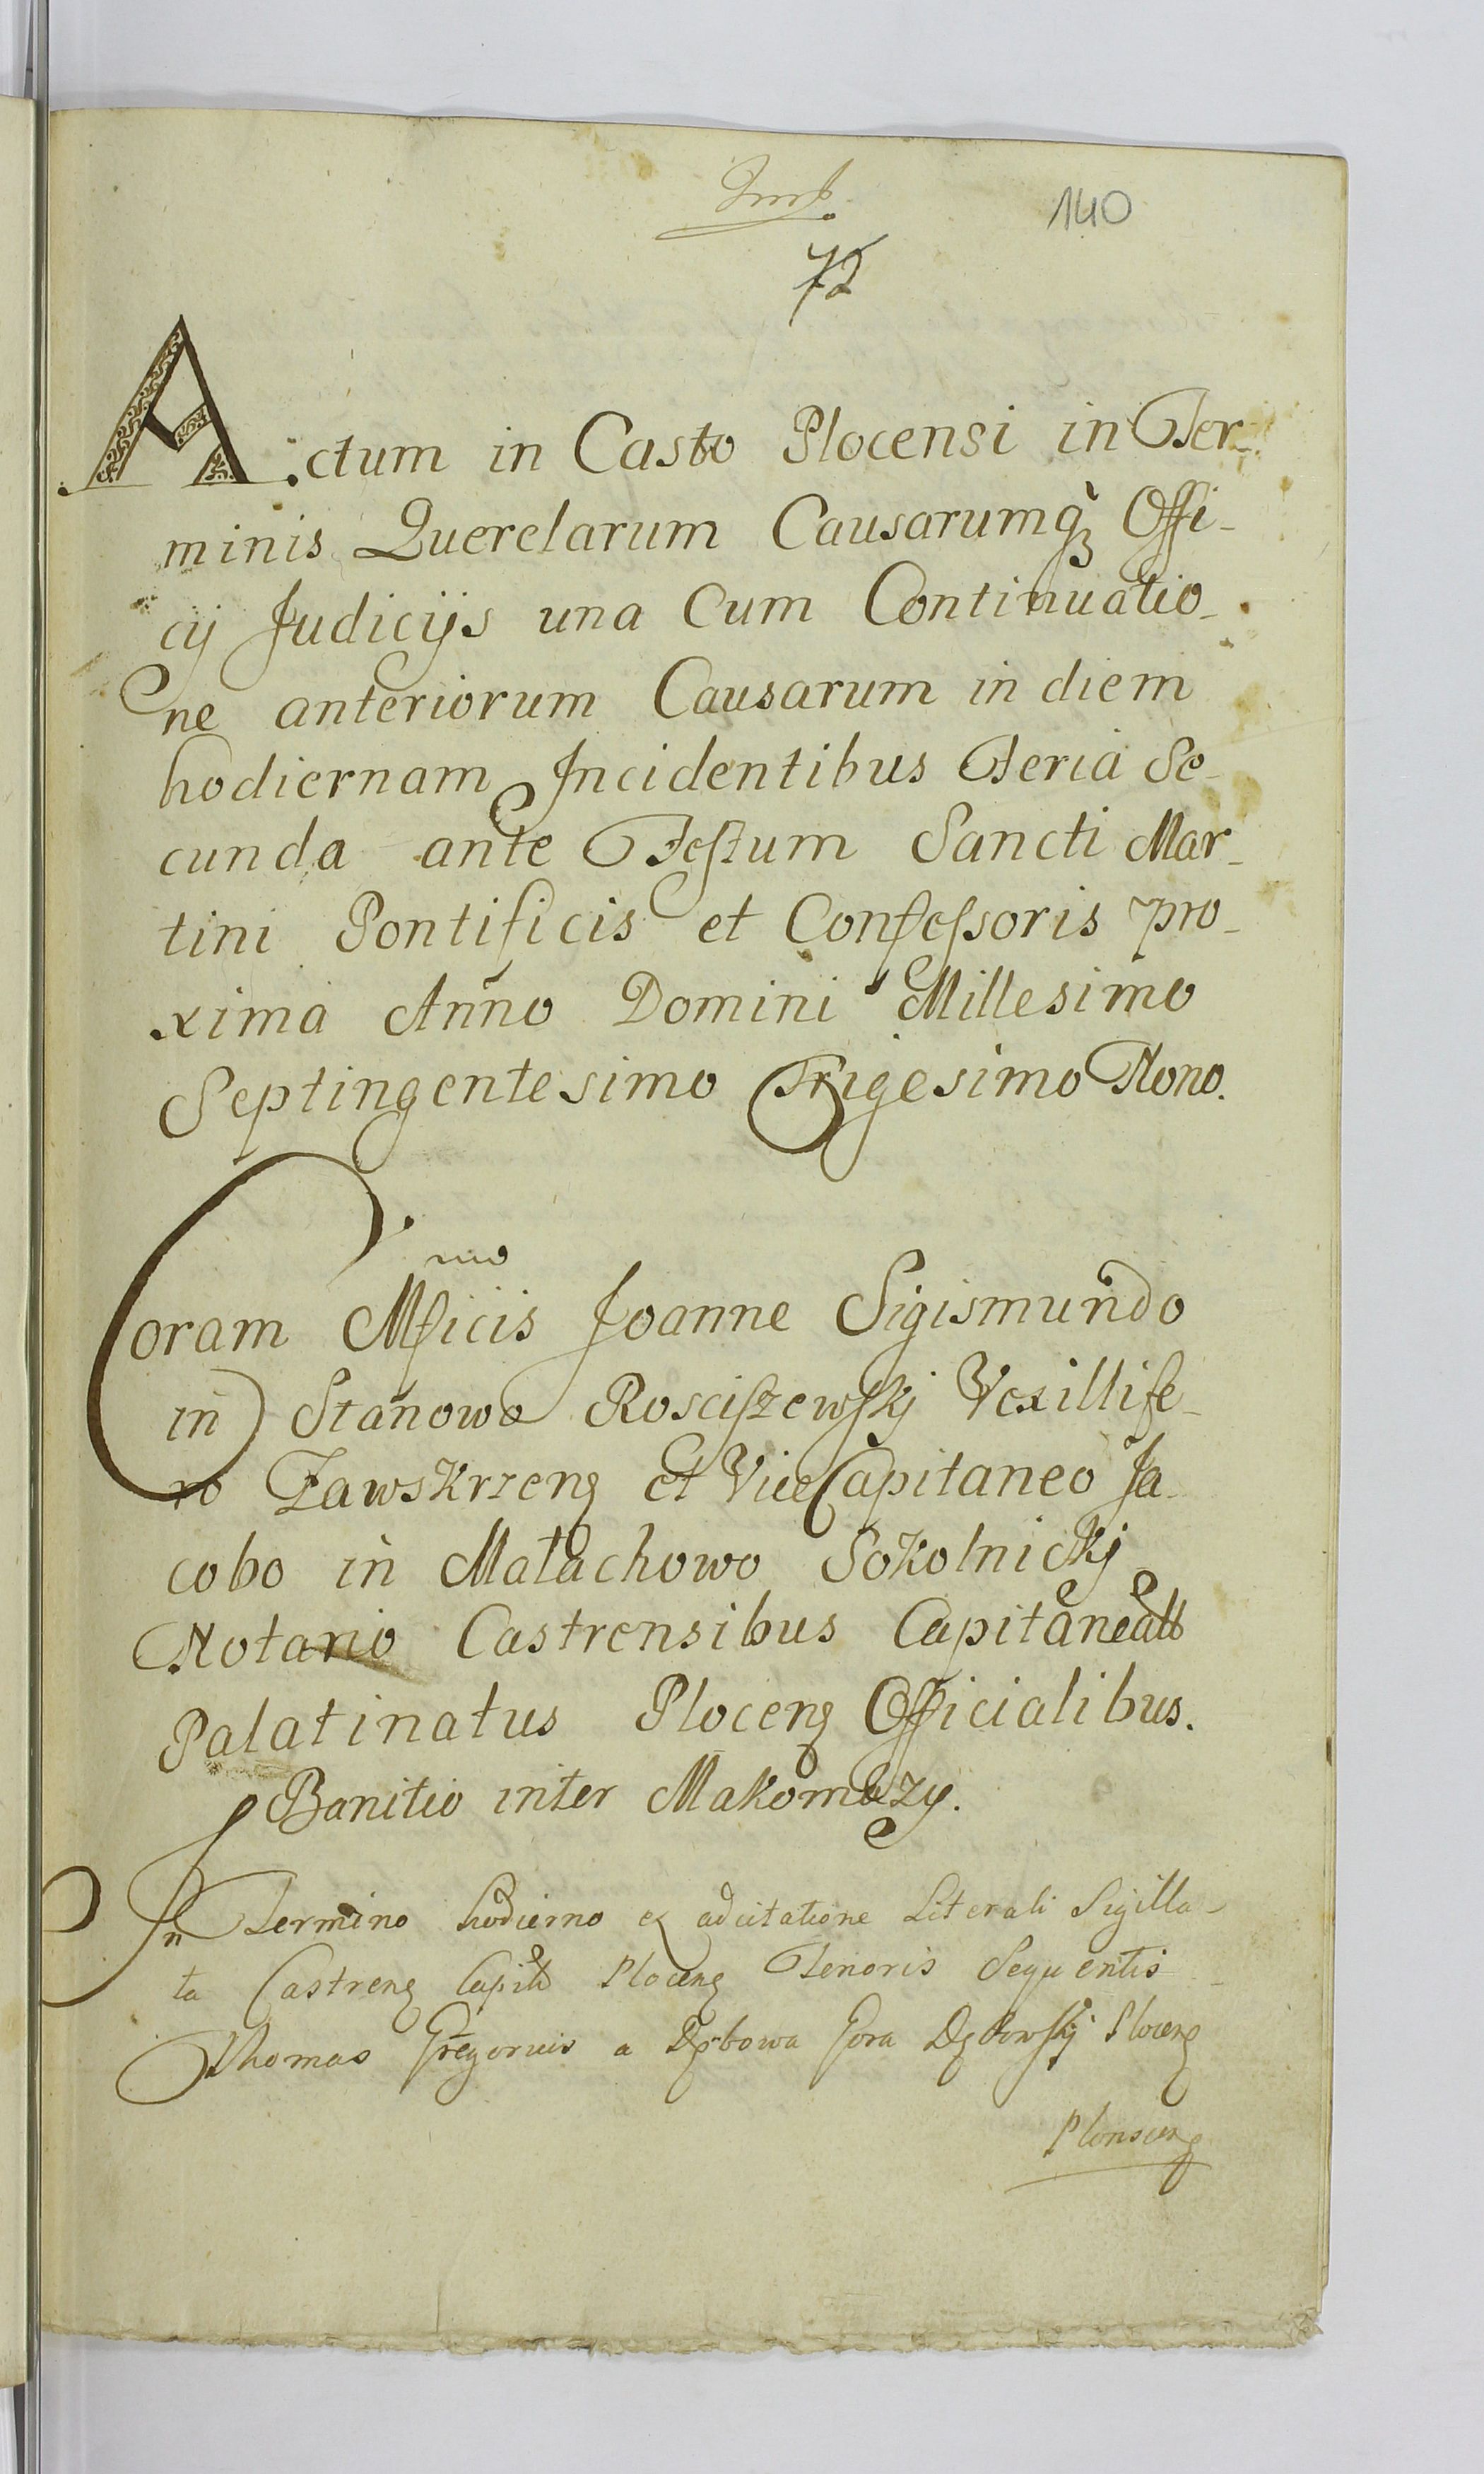 140
72
Actum in Castro Plocensi in Ter-
minis Querelarum Causarumq̀ Offi-
cij Judicijs una Cum Continuatio-
ne anteriorum Causarum in diem
hodiernam Incidentibus Feria Se-
cunda ante Festum Sancti Mar-
tini Pontificis et Confessoris pro-
xima Anno Domini Millesimo
Septingentesimo Trigesimo Nono.
Coram Mficis Joanne Sigismundo
in Stanowo Rosciszewskj Vexillife-
ro Zawskrzenʒ et ViceCapitaneo Ja-
cobo in Małachowo Sokolnickj
Notario Castrensibus Capitaneatt
Palatinatus Plocenʒ Officialibus.
Banitio inter Makomazy.
In Termino hodierno ex adcitatione Literali Sigilla-
ta Castrenʒ Capitt Plocenʒ Tenoris Sequentis
Thomas Gregorius a Dębowa Gora Dębowskj Plocenʒ
Plonscenʒ